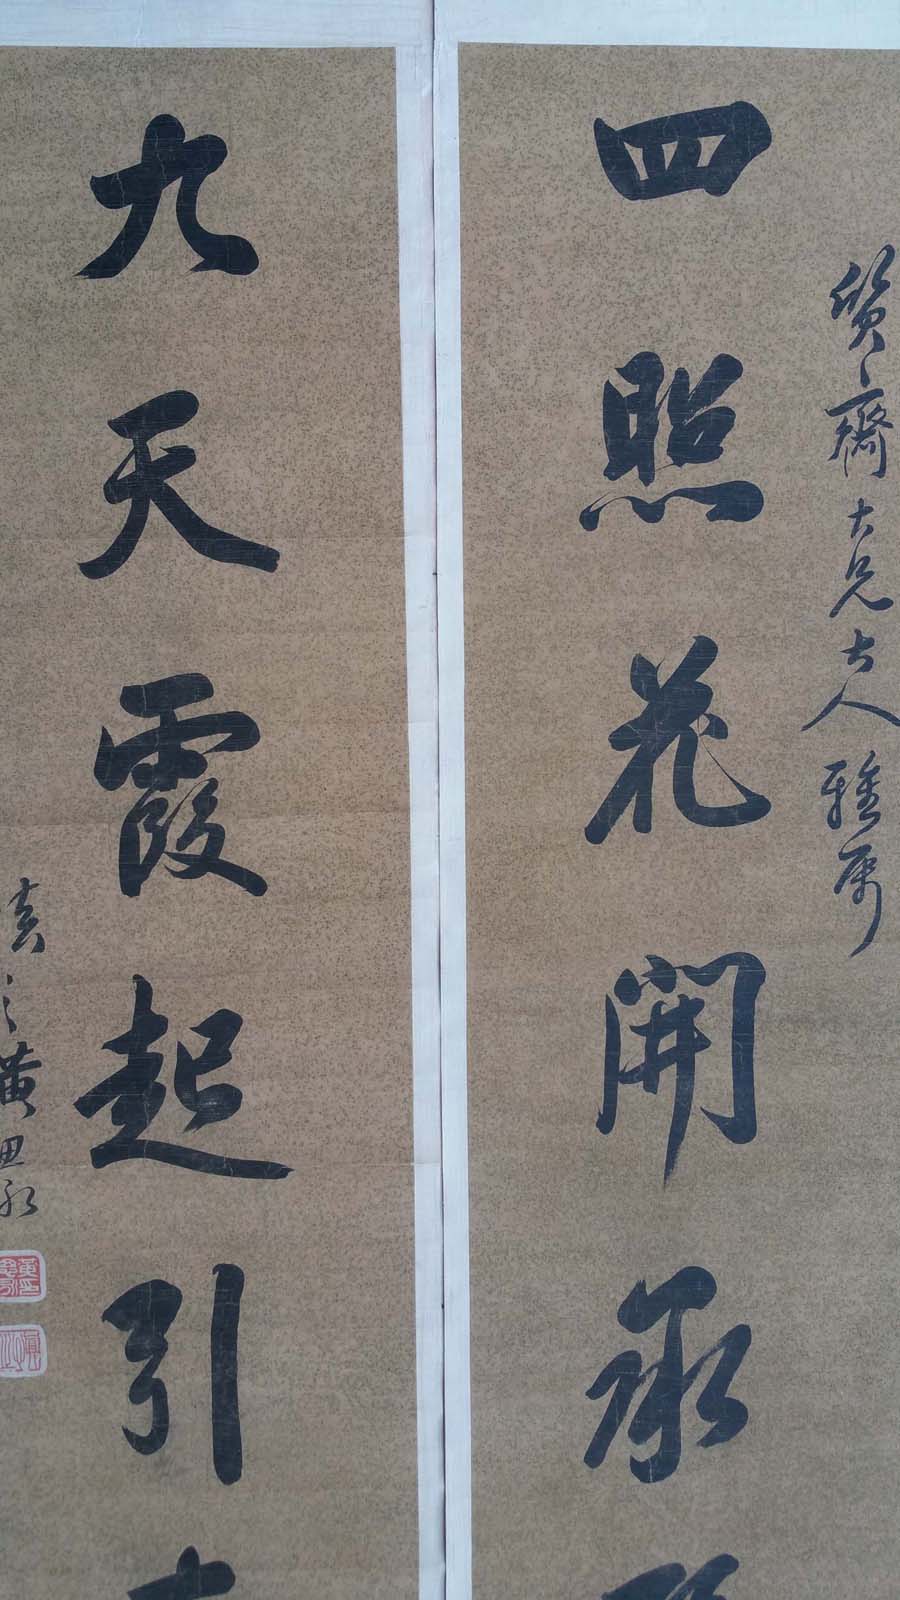 質齋大兄大人雅屬
四照花開承
九天霞起引
慎之黃思永